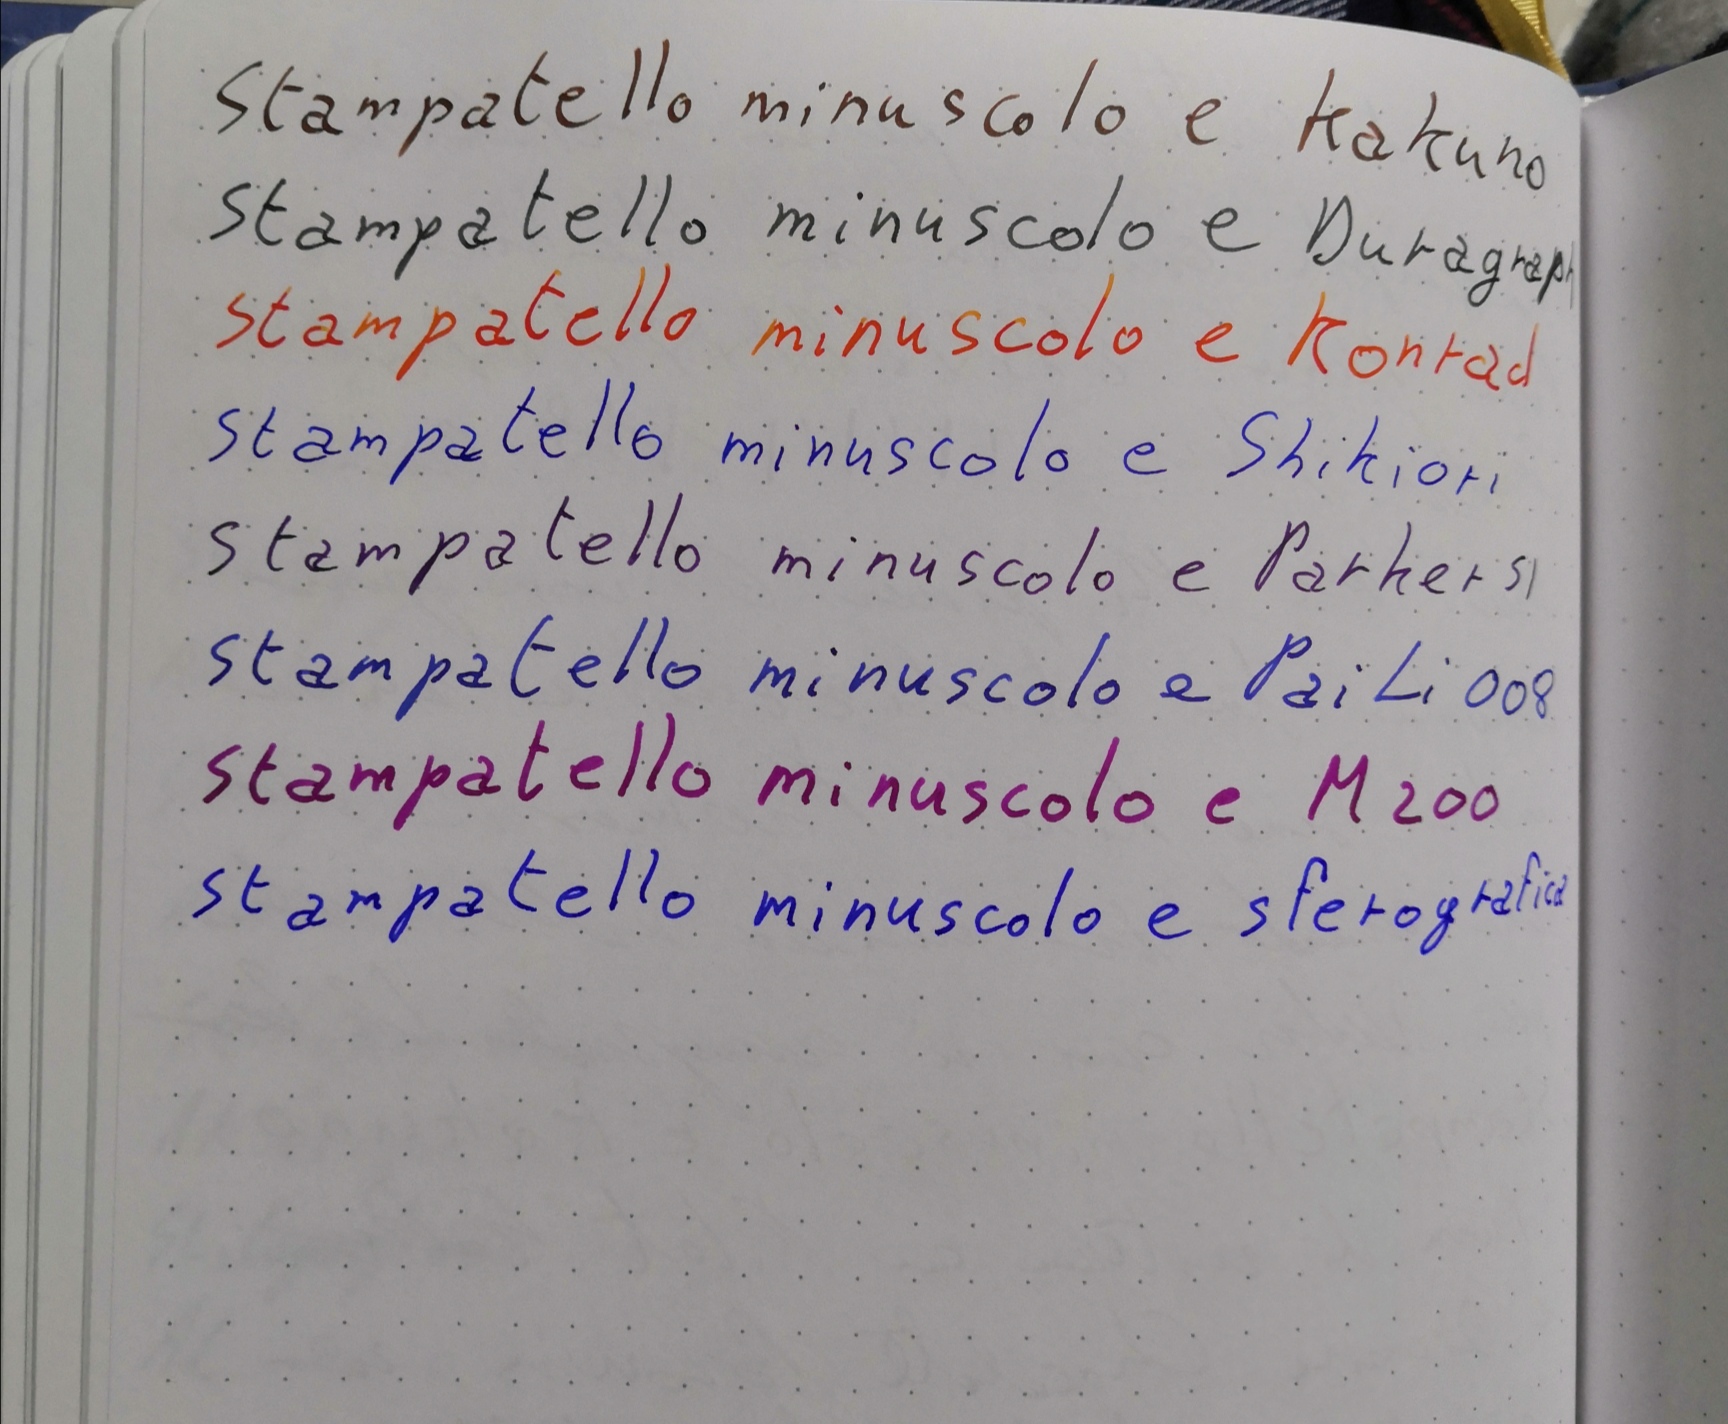 stampatello minuscolo e Kakuno
stampatello minuscolo e Duragraph
stampatello minuscolo e Konrad
stampatello minuscolo e Shikiori
stampatello minuscolo e Parker 51
stampatello minuscolo e PaiLi 008
stampatello minuscolo e M200
stampatello minuscolo e sferografica